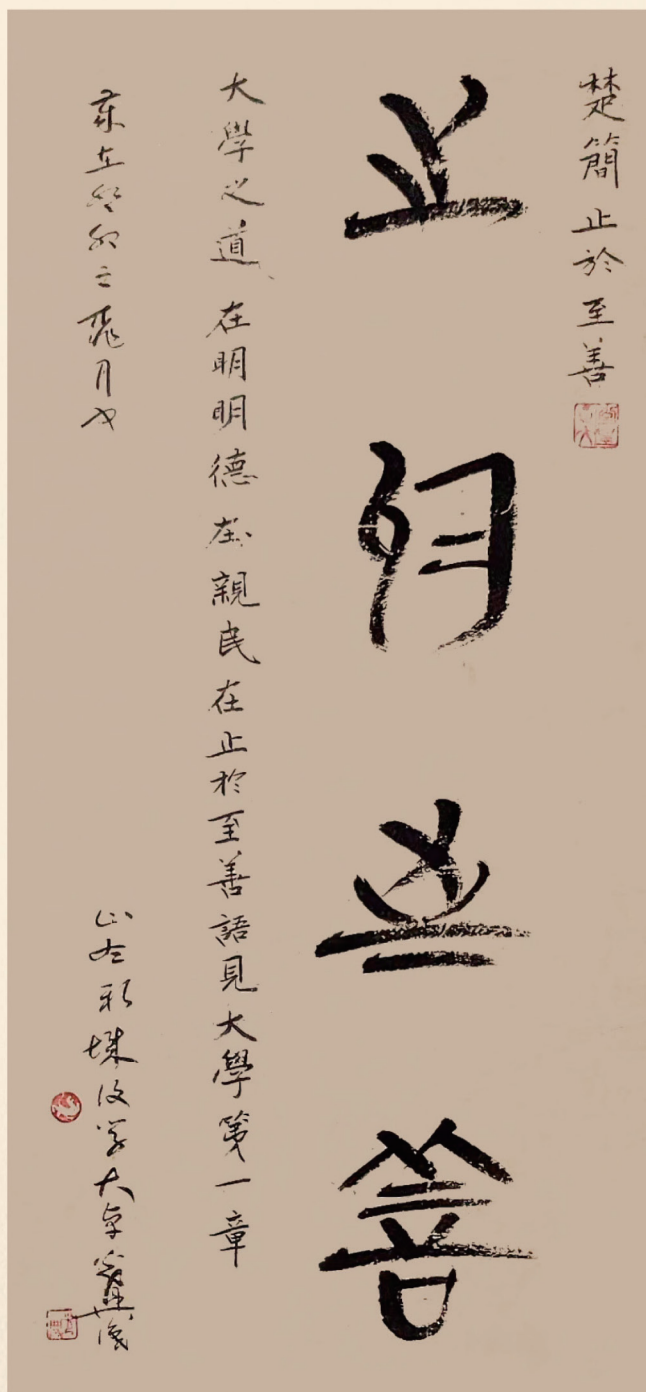 楚簡止於至善
止於至善
大學之道在明明德在親民在止於至善語見大學第一章
歲在癸卯之飛月也
山左彩墣後学大卓